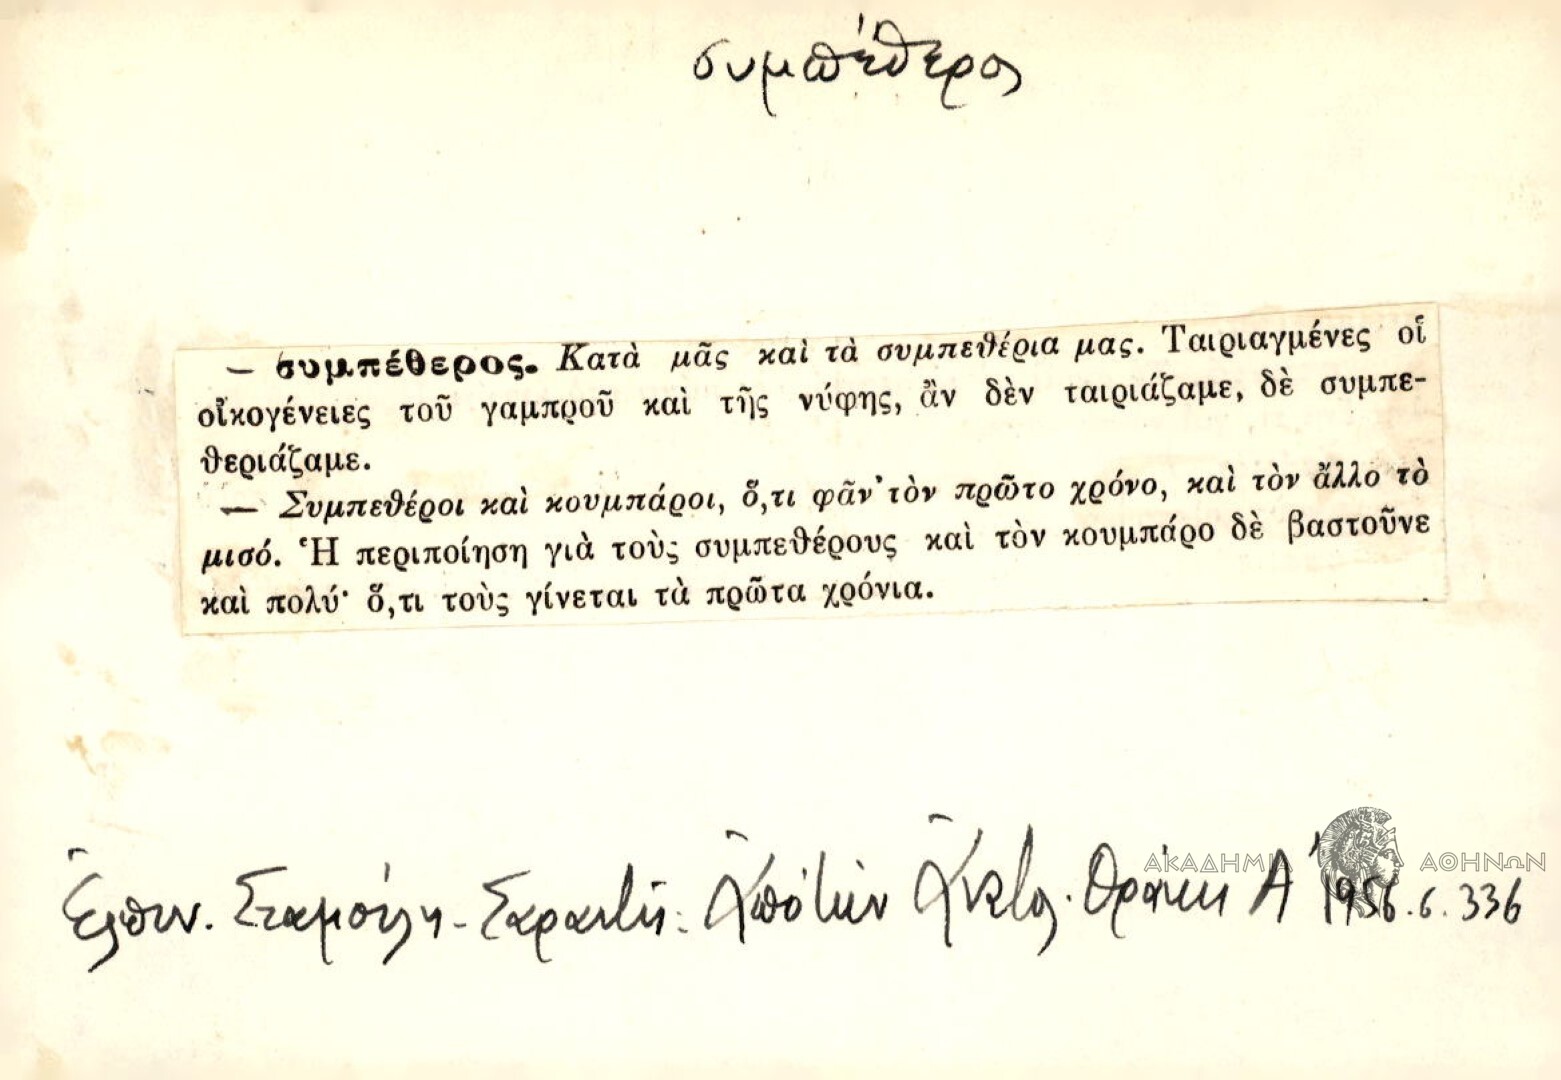 συμπέθερος
— συμπέθερος. Κατὰ μᾶς καὶ τὰ συμπεθέρια μας. Ταιριαγμένες οἱ
οἰκογένειες τοῦ γαμπροῦ καὶ τῆς νύφης, ἂν δὲν ταιριάζαμε, δὲ συμπε-
θεριάζαμε.
— Συμπεθέροι καὶ κουμπάροι, ὅ,τι φᾶν' τὸν πρῶτο χρόνο, καὶ τὸν ἄλλο τὸ
μισό. Ἡ περιποίηση γιὰ τοὺς συμπεθέρους καὶ τὸν κουμπάρο δὲ βαστοῦνε
καὶ πολύ· ὅ,τι τοὺς γίνεται τὰ πρῶτα χρόνια.
ΑΚΑΔΗΜΙΑ ΑΘΗΝΩΝ
Ἐλπιν. Σταμούλη - Σαραντῆ: Ἀπὸ τὴν Ἀνατολ. Θράκη Α' 1956. σ. 336